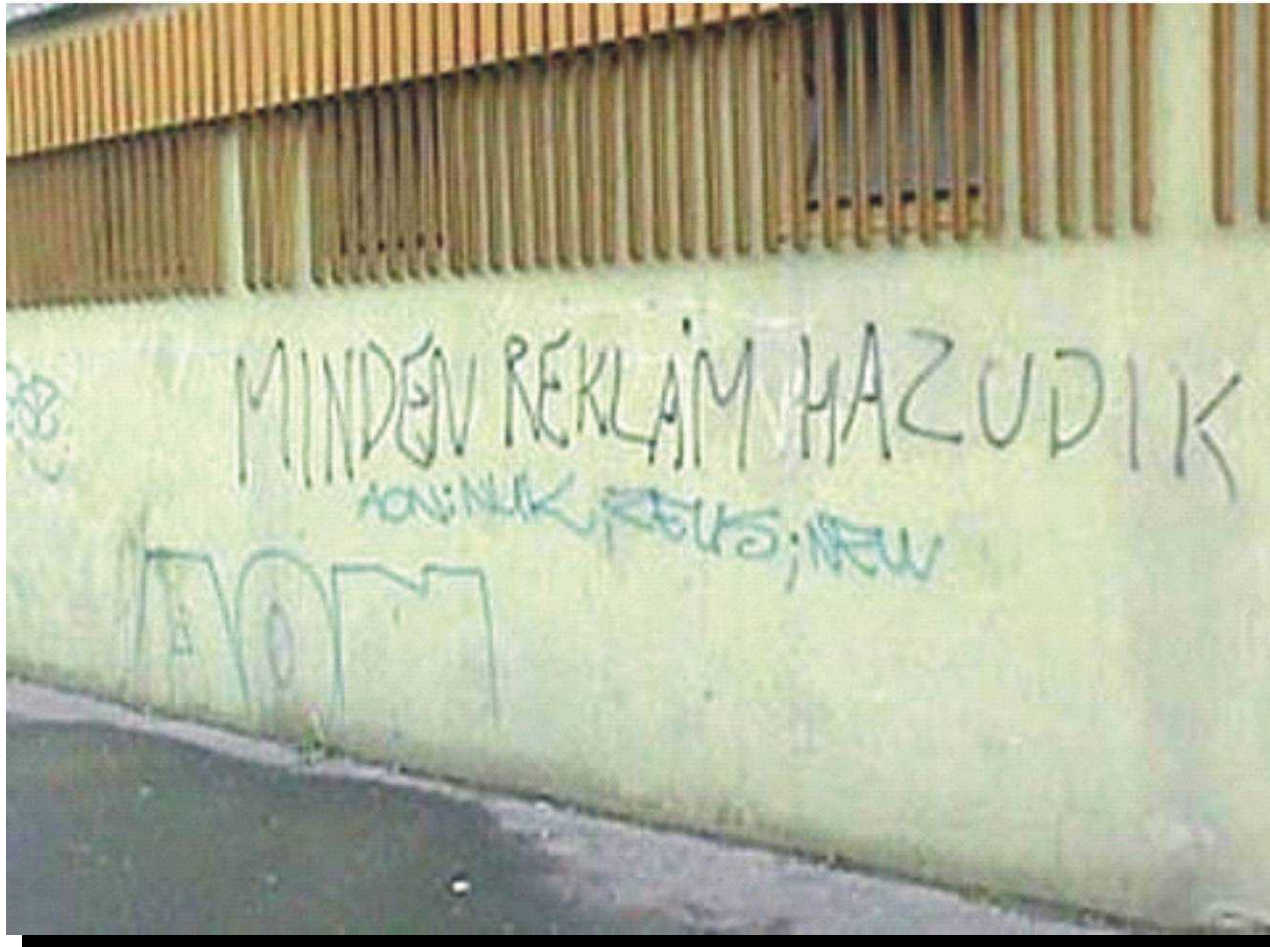 MINDEN REKLÁM HAZUDIK
AON; NUK; ZEUS; NEW
AOM